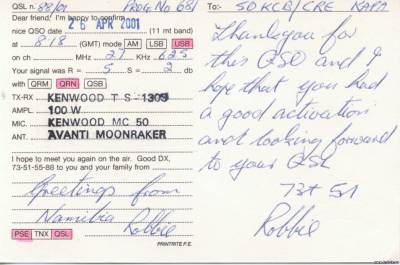 QSL n. 88/01 PROG No 681
Dear friend, I'm happy to confirm
nice QSO date 26 APR 2001 (11 mt band)
at 8.18 (GMT) mode AM LSB USB
on ch MHz 27 KHz 625
Your signal was R = 5 S = 2 db
with QRM QRN QSB
TX-RX KENWOOD TS-130S
AMPL. 100 W
MIC. KENWOOD MC 50
ANT. AVANTI MOONRAKER
I hope to meet you again on the air. Good DX,
73-51-55-88 to you and your family from
Greetings from
Namibia Robbie
PSE TNX QSL
PRINTRITE P.E.
To:- SDKCB/CRE KAPA
Thankyou for
this QSO and I
hope that you had
a good activation
and looking forward
to your QSL
73+51
Robbie